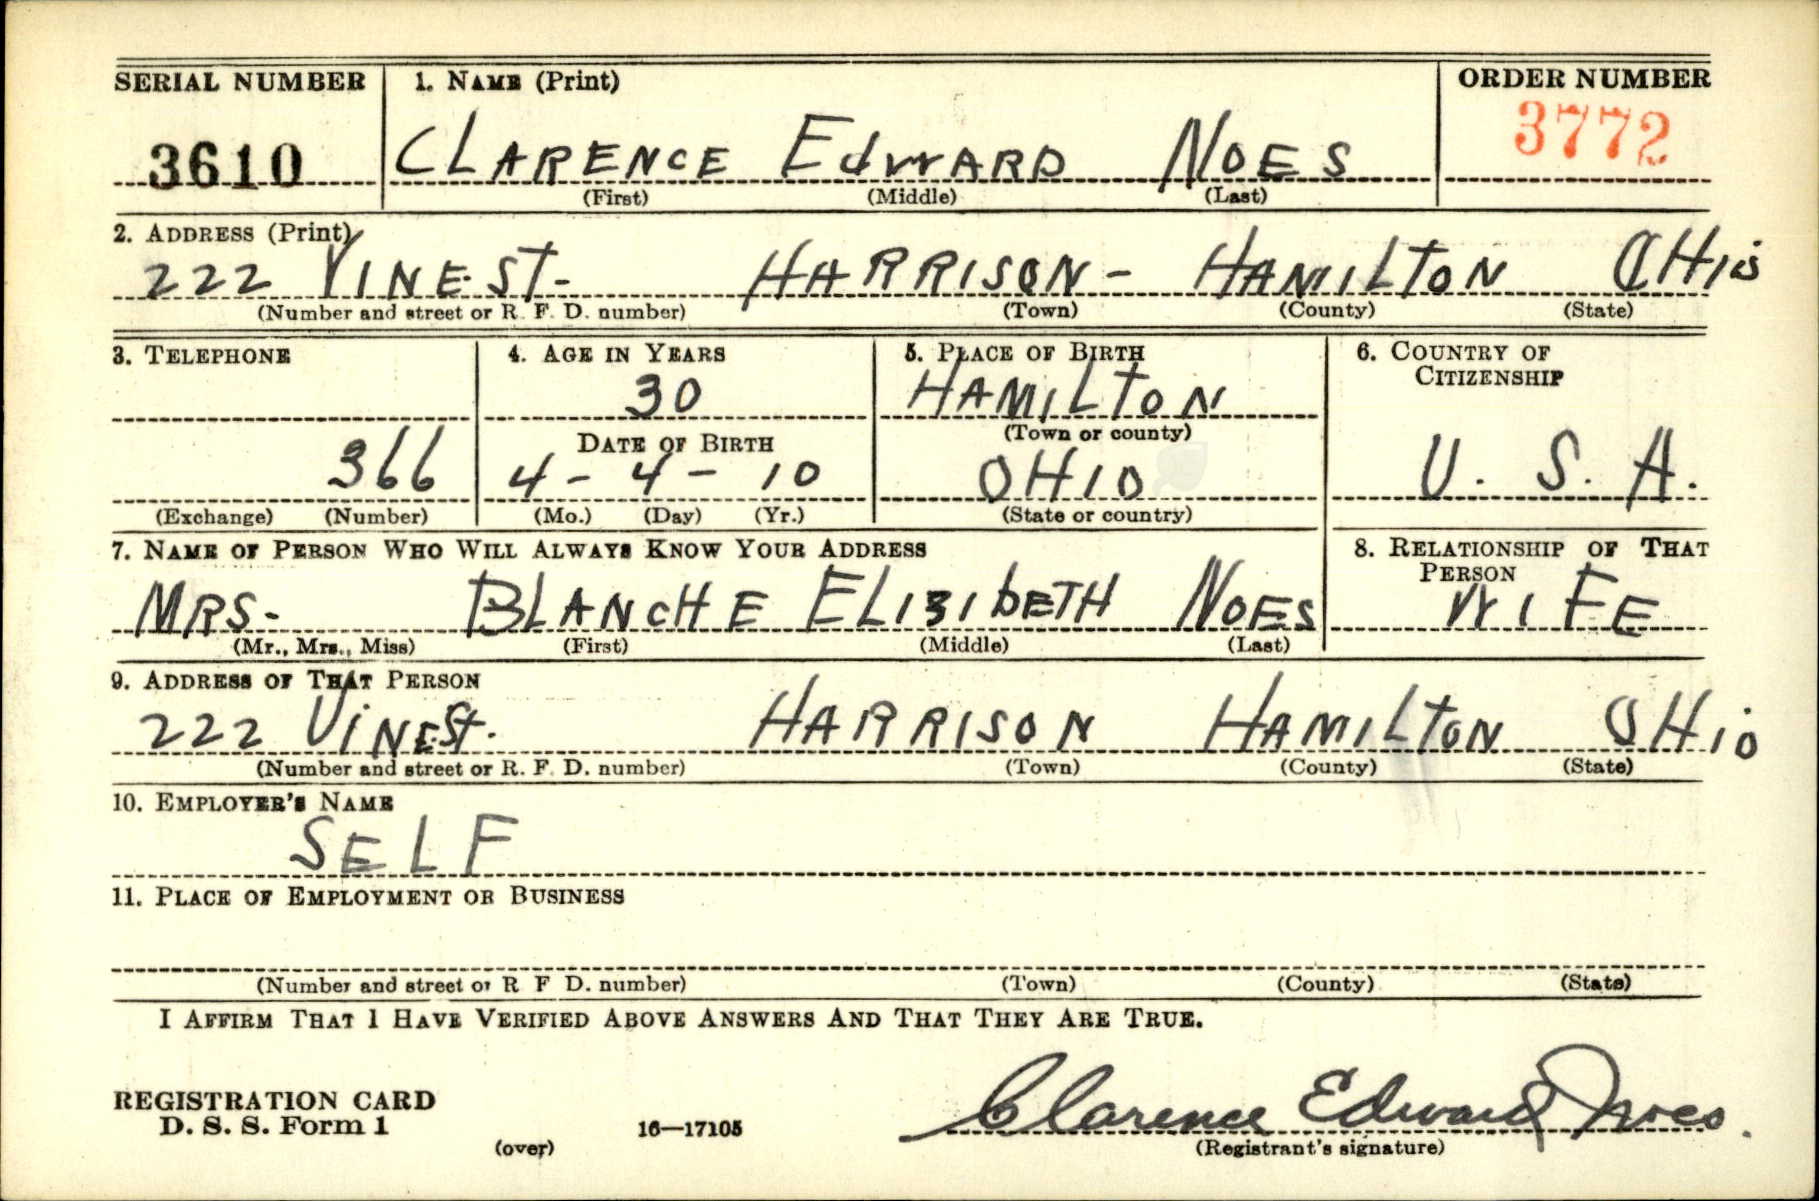 SERIAL NUMBER 1. NAME (Print) ORDER NUMBER
3610 CLARENCE EdwARD NOES 3772
(First) (Middle) (Last)
2. ADDRESS (Print)
222 VINE ST- HARRISON- HAMILTON OHio
(Number and street or R. F. D. number) (Town) (County) (State)
3. TELEPHONE 4. AGE IN YEARS 5. PLACE OF BIRTH 6. COUNTRY OF CITIZENSHIP
30 HAMILTON
DATE OF BIRTH (Town or county)
366 4-4-10 OHIO U.S.A.
(Exchange) (Number) (Mo.) (Day) (Yr.) (State or country)
7. NAME OF PERSON WHO WILL ALWAYS KNOW YOUR ADDRESS 8. RELATIONSHIP OF THAT PERSON
MRS- BLANCHE ELIZIbETH NOES WIFE
(Mr., Mrs., Miss) (First) (Middle) (Last)
9. ADDRESS OF THAT PERSON
222 ViNE St. HARRISON HAMILTON OHio
(Number and street or R. F. D. number) (Town) (County) (State)
10. EMPLOYER'S NAME
SELF
11. PLACE OF EMPLOYMENT OR BUSINESS
(Number and street or R F D. number) (Town) (County) (State)
I AFFIRM THAT I HAVE VERIFIED ABOVE ANSWERS AND THAT THEY ARE TRUE.
REGISTRATION CARD
D. S. S. Form 1
(over) 16—17105
Clarence Edward Noes.
(Registrant's signature)